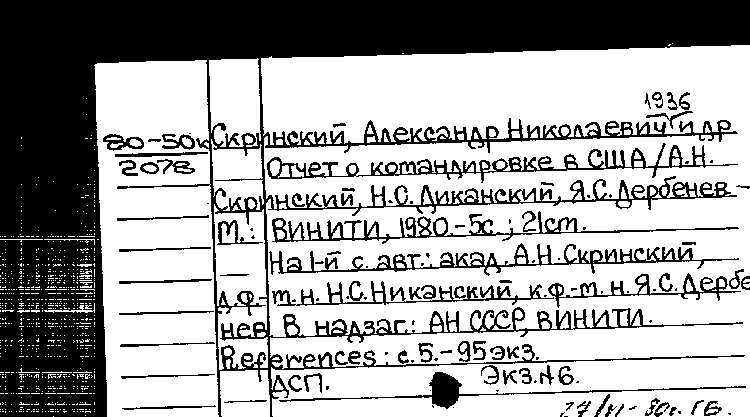 1936
80-50к Скринский, Александр Николаевич и др
2078 Отчет о командировке в США/А.Н.
Скринский, Н.С. Диканский, Я.С. Дербенев -
М.: ВИНИТИ, 1980.-5с.; 21cm.
На 1-й с. авт.: акад. А.Н. Скринский,
д.ф-м.н. Н.С. Никанский, к.ф.-м.н. Я.С. Дербе
нев. В надзаг.: АН СССР, ВИНИТИ.
References: с.5.-95экз.
ДСП. Экз.№6.